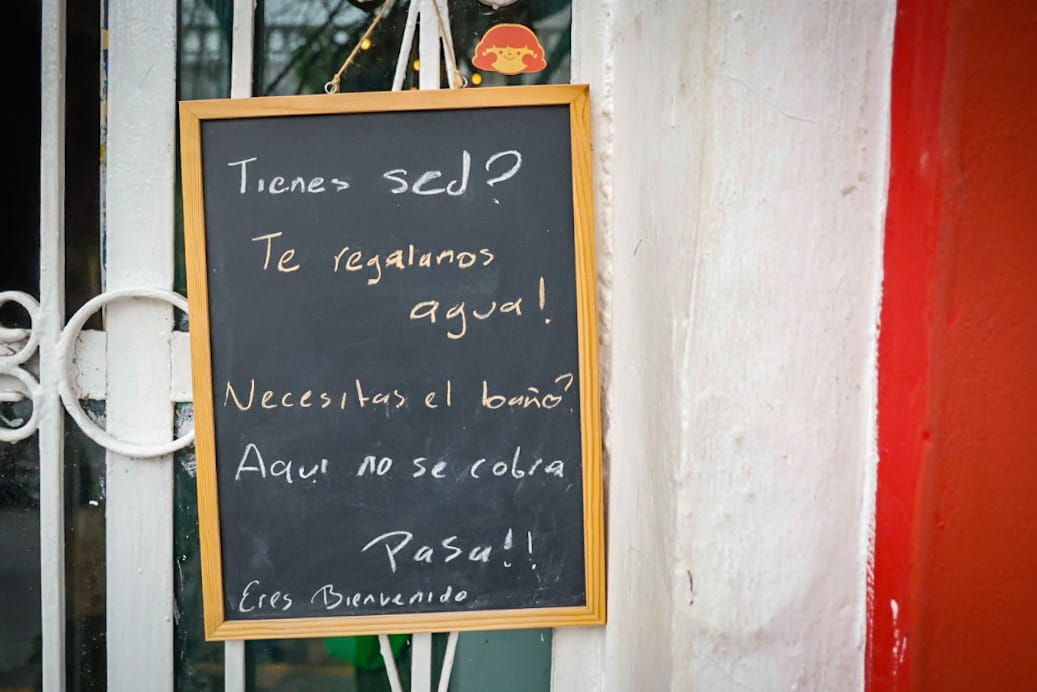 Tienes sed?
Te regalamos
agua!
Necesitas el baño?
Aqui no se cobra
Pasa!!
Eres Bienvenido